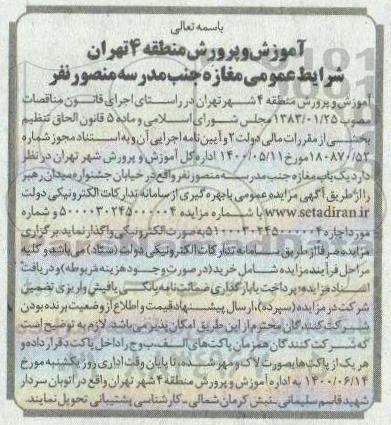 باسمه تعالی
آموزش و پرورش منطقه ۴ تهران
شرایط عمومی مغازه جنب مدرسه منصور نفر
آموزش و پرورش منطقه ۴ شهر تهران در راستای اجرای قانون مناقصات
مصوب ۱۳۸۳/۰۱/۲۵ مجلس شورای اسلامی و ماده ۵ قانون الحاق تنظیم
بخشی از مقررات مالی دولت ۲ و آیین نامه اجرایی آن و به استناد مجوز شماره
۱۸۰۸۷۰/۵۲ مورخ ۱۴۰۰/۰۵/۱۱ اداره کل آموزش و پرورش شهر تهران در نظر
دارد یک باب مغازه جنب مدرسه منصور نفر واقع در خیابان جشنواره میدان رهبر
را از طریق آگهی مزایده عمومی با بهره گیری از سامانه تدارکات الکترونیکی دولت
www.setadiran.ir با شماره مزایده ۵۰۰۰۰۳۰۲۴۵۰۰۰۰۰۴ و شماره
مورد اجاره ۵۱۰۰۰۰۳۰۲۴۵۰۰۰۰۰۴ به صورت الکترونیکی واگذار نماید برگزاری
مزایده صرفا از طریق سامانه تدارکات الکترونیکی دولت (ستاد) می باشد و کلیه
مراحل فرآیند مزایده شامل خرید (در صورت وجود هزینه مربوطه) و دریافت
اسناد مزایده، پرداخت یا بارگذاری ضمانت نامه بانکی یا فیش واریزی تضمین
شرکت در مزایده (سپرده)، ارسال پیشنهاد قیمت و اطلاع از وضعیت برنده بودن
شرکت کنندگان محترم از این طریق امکان پذیر می باشد. لازم به توضیح است
که شرکت کنندگان همزمان پاکت های الف، ب و ج را داخل پاکت د قرار داده و
هر یک از پاکت ها بصورت لاک و مهر شده، تا پایان وقت اداری روز یکشنبه مورخ
۱۴۰۰/۰۶/۱۴ به اداره آموزش و پرورش منطقه ۴ شهر تهران واقع در اتوبان سردار
شهید قاسم سلیمانی-نبش کرمان شمالی-کارشناسی پشتیبانی تحویل نمایند.